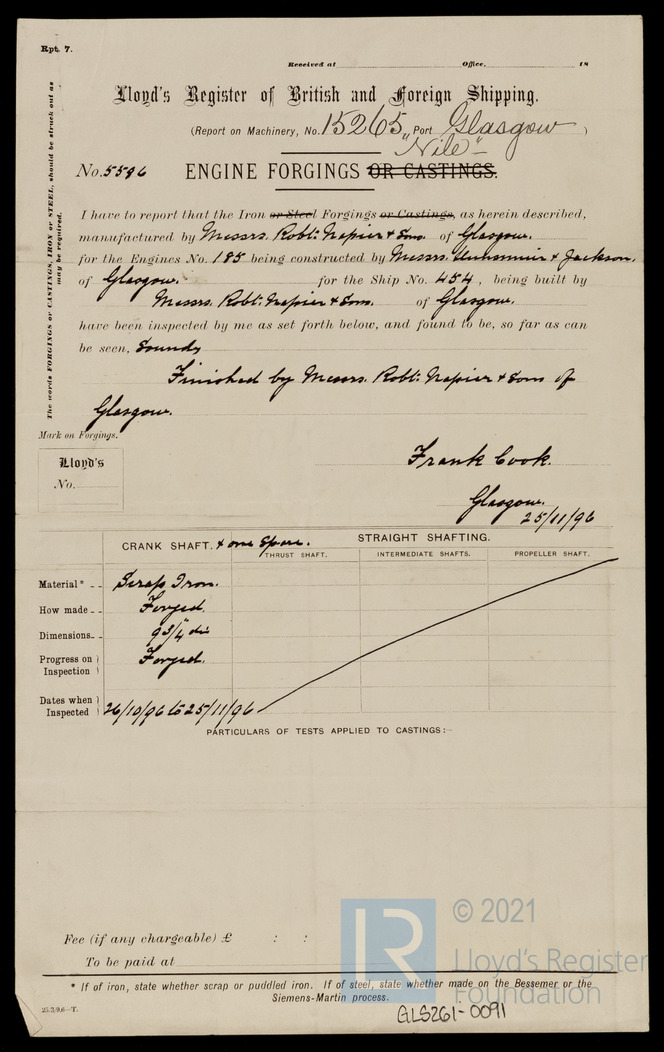 Rpt. 7.
Received at Office, 18
Lloyd's Register of British and Foreign Shipping.
(Report on Machinery, No. 15265, Port Glasgow)
"Nile"
No. 5596 ENGINE FORGINGS OR CASTINGS.
The words FORGINGS or CASTINGS, IRON or STEEL, should be struck out as may be required.
I have to report that the Iron or Steel Forgings or Castings, as herein described,
manufactured by Messrs. Robt. Napier & Sons of Glasgow.
for the Engines No. 185 being constructed by Messrs. Dunsmuir & Jackson,
of Glasgow. for the Ship No. 454, being built by
Messrs. Robt. Napier & Sons. of Glasgow.
have been inspected by me as set forth below, and found to be, so far as can
be seen, Sound
Finished by Messrs. Robt. Napier & Sons of
Glasgow.
Mark on Forgings.
Lloyd's
No.
Frank Cook.
Glasgow.
25/11/96
CRANK SHAFT. & one Spare. STRAIGHT SHAFTING.
THRUST SHAFT. INTERMEDIATE SHAFTS. PROPELLER SHAFT.
Material* Scrap Iron.
How made Forged.
Dimensions 9 3/4" dia
Progress on Inspection Forged.
Dates when Inspected 26/10/96 to 25/11/96
PARTICULARS OF TESTS APPLIED TO CASTINGS:—
Fee (if any chargeable) £ : :
To be paid at
* If of iron, state whether scrap or puddled iron. If of steel, state whether made on the Bessemer or the
Siemens-Martin process.
25.3.9.6—T.
GLS261-0091
LR
© 2021
Lloyd's Register
Foundation